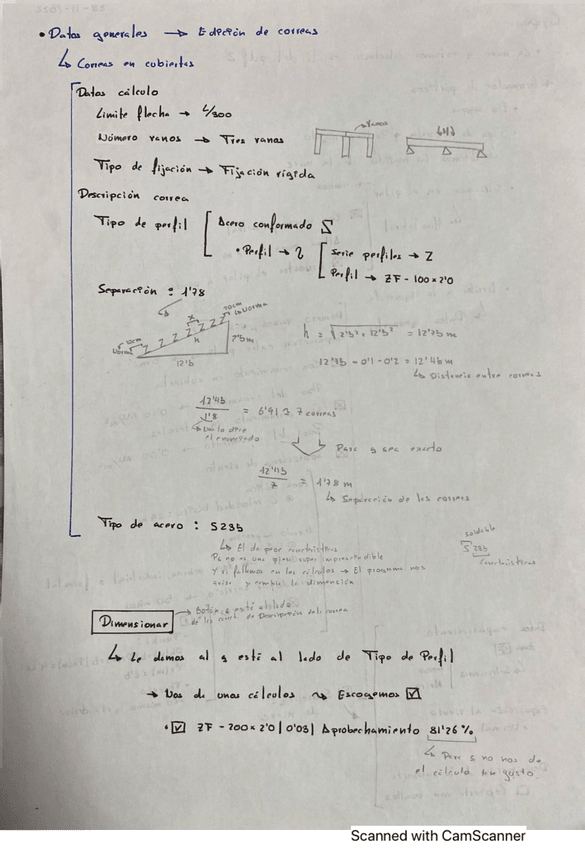 • Datos generales → Edición de correas
↳ Correas en cubiertas
Datos cálculo
Limite flecha → L/300
Número vanos → Tres vanos
→ Vanos
Tipo de fijación → Fijación rígida
Descripción correa
Tipo de perfil
Acero conformado
• Perfil →
Serie perfiles → Z
Perfil → ZF - 100 x 2'0
Separación : 1'78
x
h
2'5m
12'5
h = √2'5² + 12'5² = 12'75 m
12'75 - 0'1 - 0'2 = 12'45 m
↳ Distancia entre correas
12'45 / 1'8 = 6'91 ≃ 7 correas
el enunciado
Para q sea exacto
12'45 / 7 = 1'78 m
↳ Separación de las correas
Tipo de acero : S235
soldable
S 235
↳ El de peor característica
Y si fallamos en los cálculos → El programa nos
avisa y cambia la dimensión
Dimensionar
→ Botón q está al lado
↳ Le damos al q está al lado de Tipo de Perfil
→ Nos da unos cálculos ⤳ Escogemos ☑
• ☑ ZF - 200 x 2'0 | 0'03 | Aprobechamiento 81'26 %
↳ Para q no nos de
el cálculo tan justo
Scanned with CamScanner